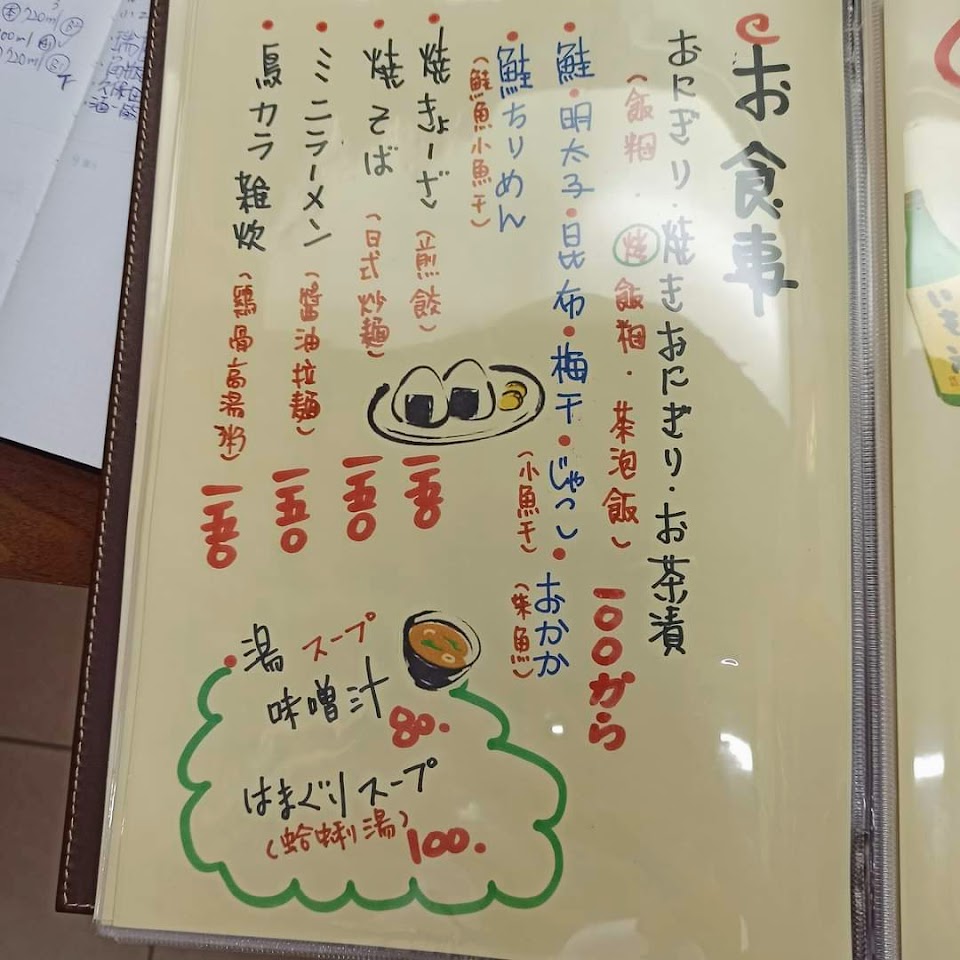 お食事
おにぎり・焼きおにぎり・お茶漬
(飯糰・焼飯糰・茶泡飯)
一〇〇から
鮭・明太子・昆布・梅干・じゃっこ・おかか
(小魚干)
(柴魚)
・鮭ちりめん
(鮭魚小魚干)
・焼きょーざ (煎餃)
・焼そば (日式炒麺) 一五〇
・ミニラーメン (醬油拉麺) 一五〇
・鳥ガラ雑炊 (鶏骨高湯粥) 一五〇
・湯 スープ
味噌汁 80.
はまぐりスープ
(蛤蜊湯) 100.
220ml
220ml